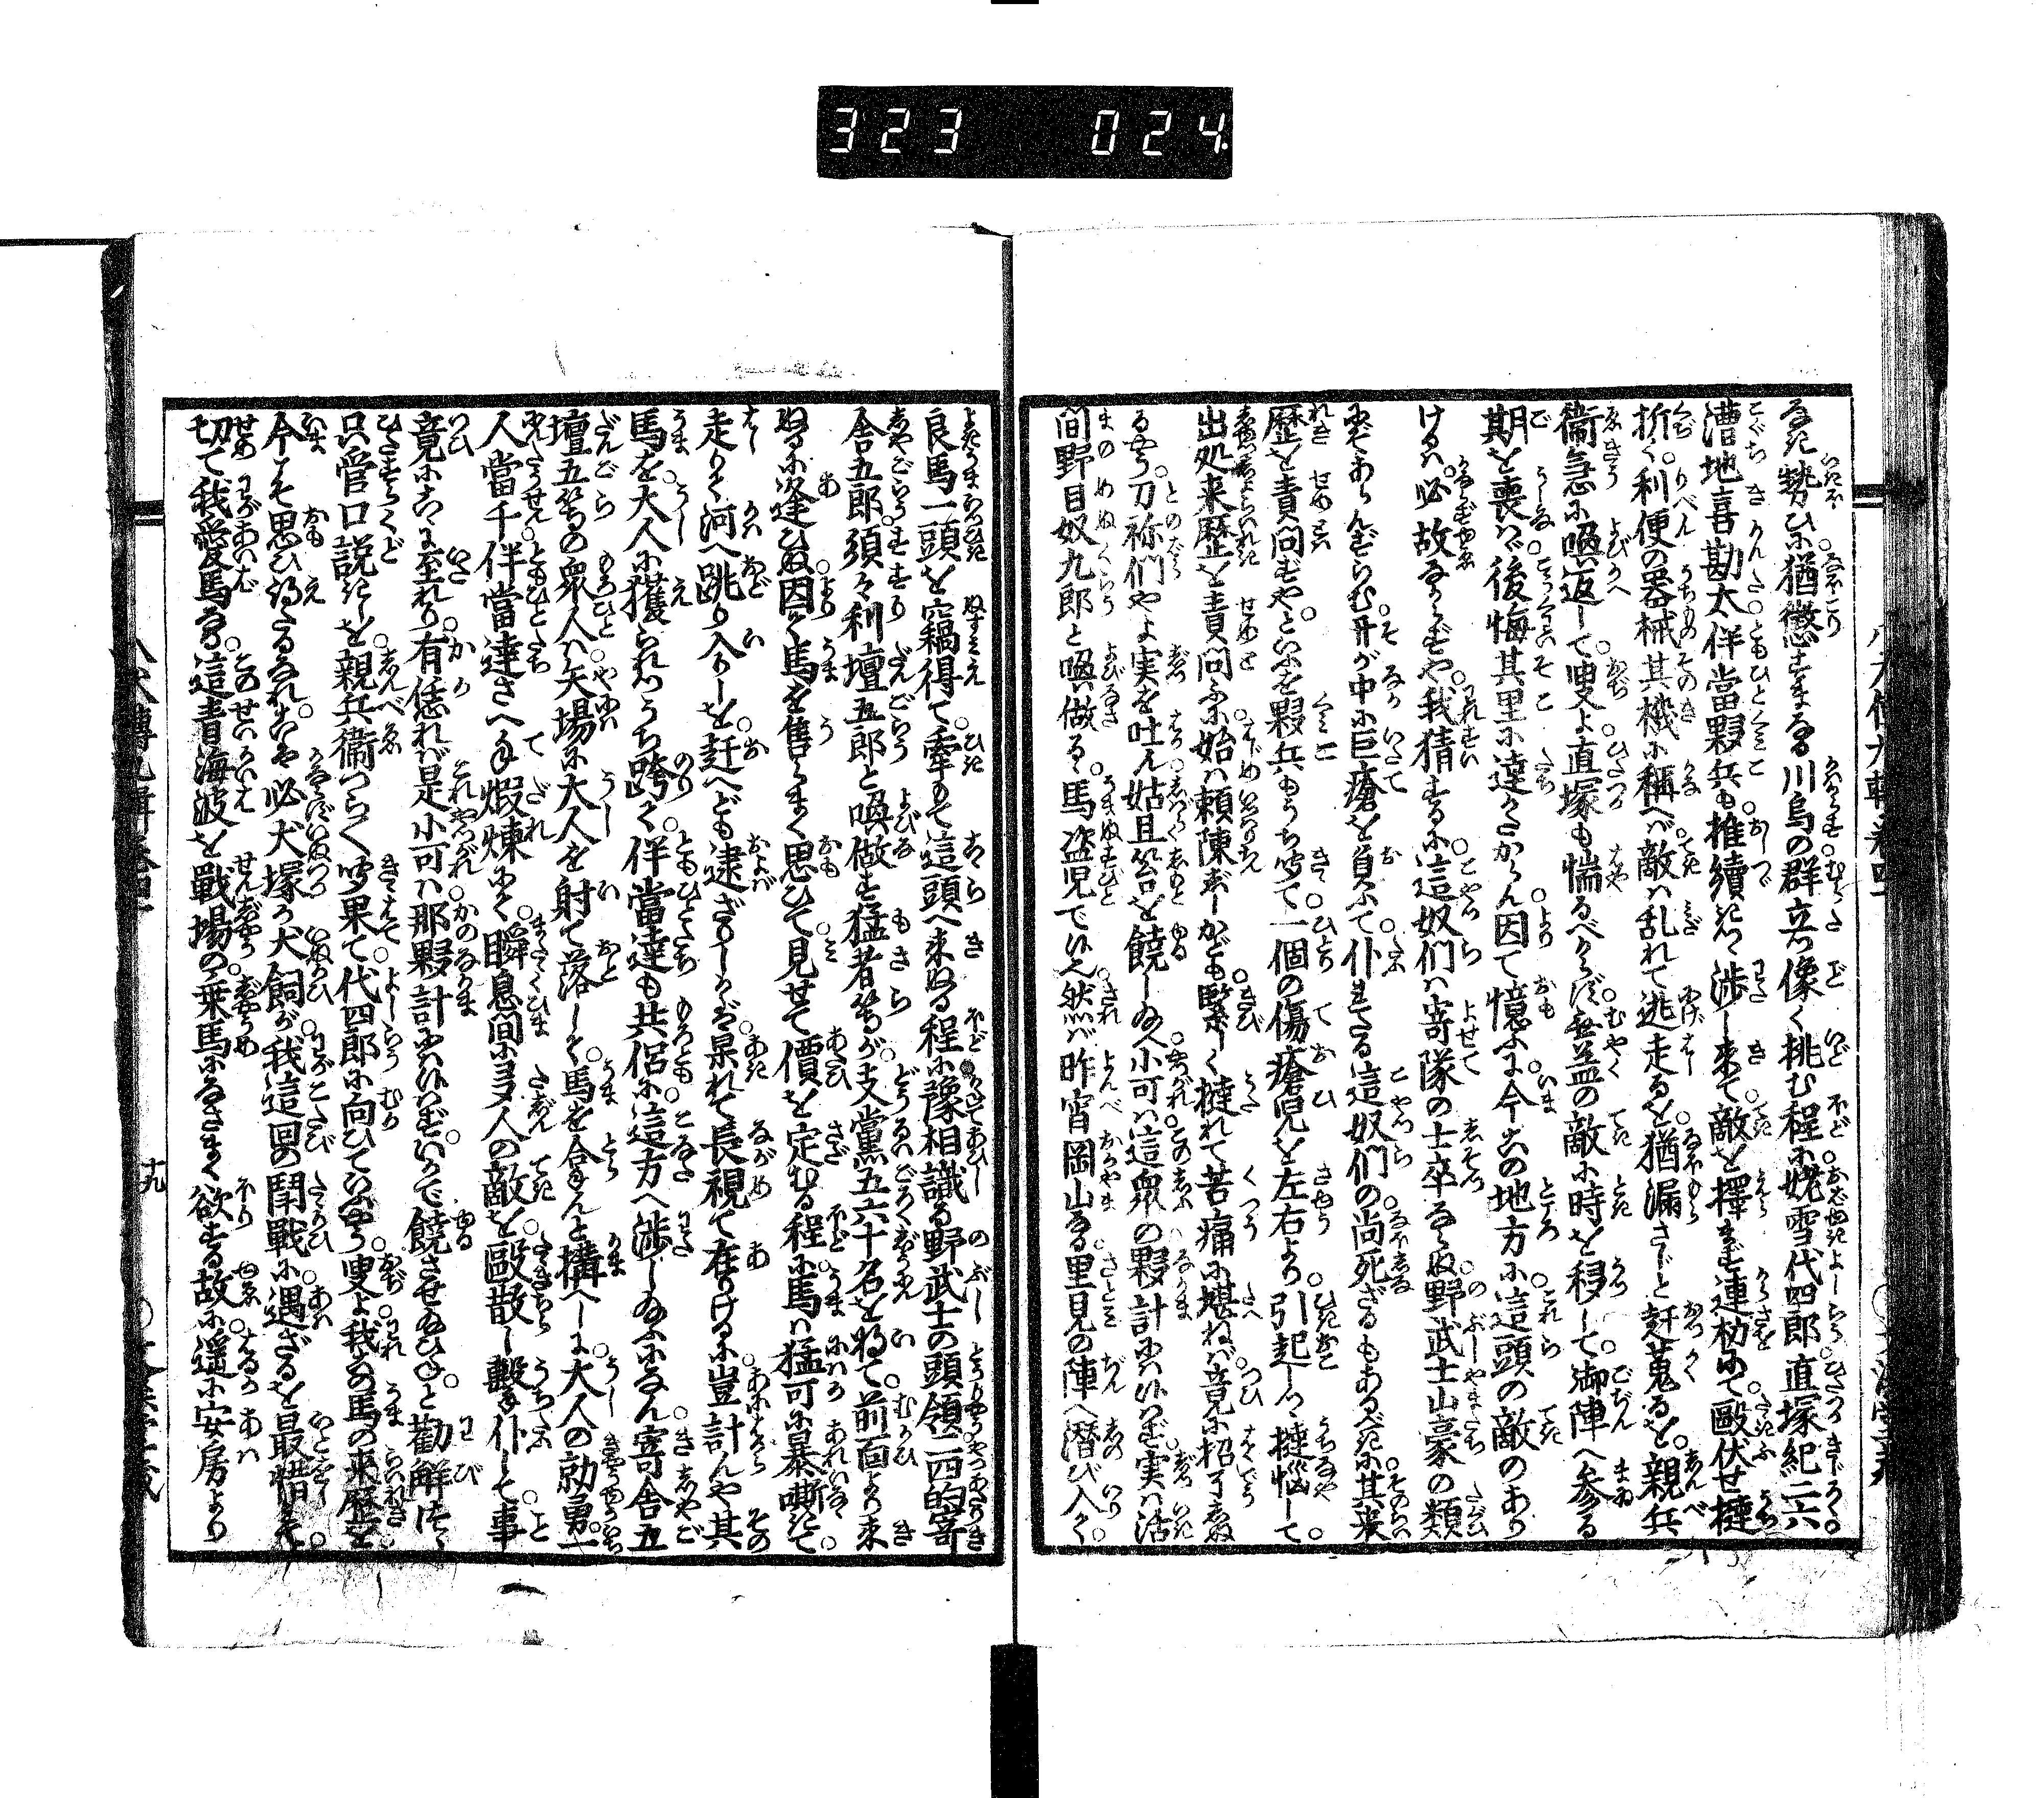 323 024
なき勢ひに猶懲ずまなる川烏の群立像く挑む程に姥雪代四郎直塚紀二六
漕地喜勘太伴當夥兵も推續きつゝ渉し来て敵を擇まず連枷にて毆伏せ撻
折く利便の器械其機に稱へば敵は乱れて逃走るを猶漏さじと赶蒐るを親兵
衞急に喚返して叟よ直塚も惴るべからず無益の敵に時を移して御陣へ参る
期を喪はゞ後悔其里に達かたからん因て憶ふに今この地方に這頭の敵のあり
けるは必故あらずや我猜するに這奴們は寄隊の士卒ならぬ野武士山豪の類
にぞあらんずらむ开が中に巨瘡を負ふて仆れたる這奴们の尚死ざるもあるべきに其来
歴を責問ずやといふを夥兵もうち听て一個の傷瘡児を左右より引起しつゝ撻惱して
出処来歴を責問ふに始は頼陳ぜしかども緊しく撻れて苦痛に堪ねば竟に招了しぬ
るやう刀祢們やよ実を吐ん姑且笞を饒し給へ小可は這衆の夥計にはいはず実は活
間野目奴九郎と喚做るゝ馬盗児でいひき然れば昨宵岡山なる里見の陣へ潜び入りて
良馬一頭を竊得て牽もて這頭へ来ぬる程に豫相識る野武士の頭領二四的寄
舎五郎須々利壇五郎と喚做す猛者等が支黨五六十名を将て前面より来
ぬるに逢ひぬ因て馬を售らまく思ひて見せて價を定むる程に馬は猛可に暴嘶きて
走りて河へ跳り入りしを赶へども逮ざりしかば呆れて長視て在りけるに豈計んや其
馬を大人に獲られうち跨て伴當達も共侶に這方へ渉し給ふになん寄舎五
壇五等の衆人は矢場に大人を射て落して馬を合らんと構へしに大人の勍勇一
人當千伴當達さへ手煆煉にて瞬息間に多人の敵を毆散し擊仆して事
竟にこゝに至れり有恁れば是小可は那夥計にはいはずいかで饒させ給ひねと勸解つゝ
只管口説きしを親兵衞つらく听果て代四郎に向ひていふやう叟よ我この馬の来歴を
今こそ思ひ得たるなれこは必犬塚か犬飼が我這回の鬪戰に遇ざるを最惜み
切て我愛馬なる這青海波を戰場の乗馬になさまく欲する故に遥に安房より
十九